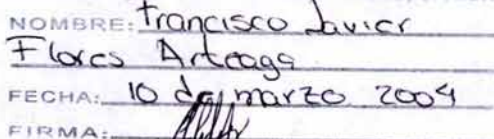 NOMBRE: Francisco Javier
Flores Arteaga
FECHA: 10 de marzo 2004
FIRMA: